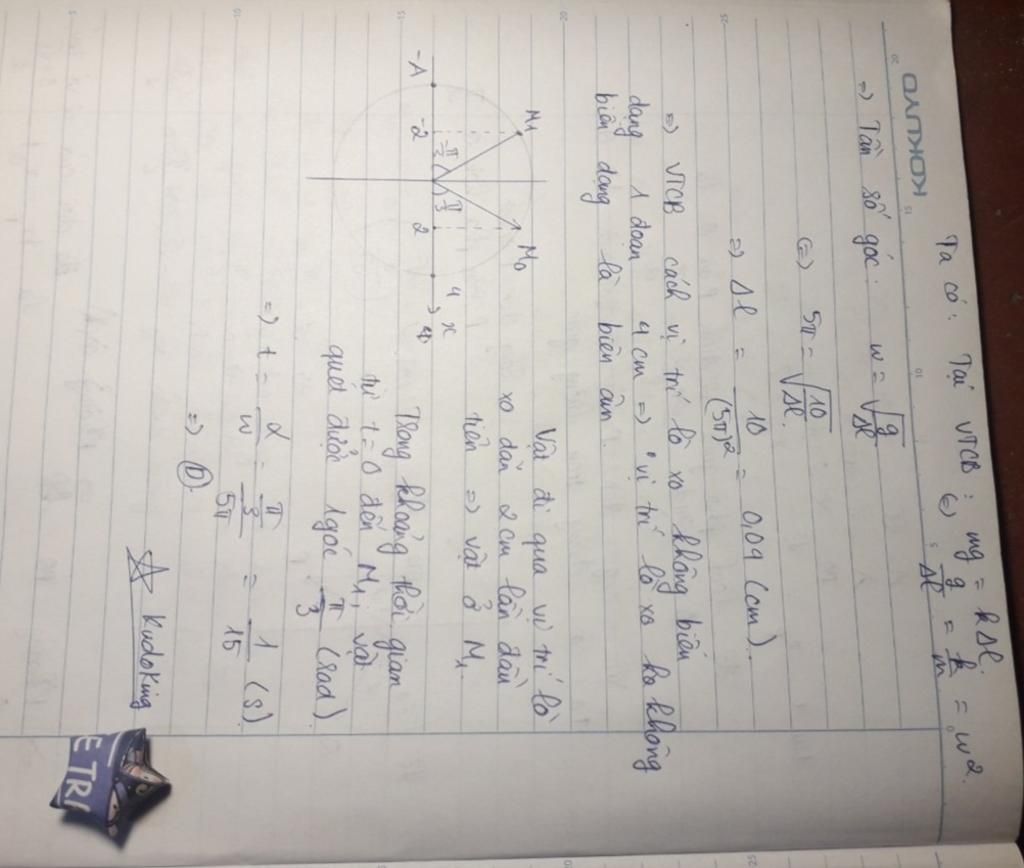 KOKUYO
Ta có: Tại VTCB: mg = kΔl.
(=) g/Δl = k/m = w².
=) Tần số góc: w = √(g/Δl)
(=) 5π = √(10/Δl.)
=) Δl = 10/(5π)² = 0,04 (cm).
=) VTCB cách vị trí lò xo không biến
dạng 1 đoạn 4 cm =) vị trí lò xo ko không
biến dạng là biên âm.
M1
M0
-A
-2
π/3
π/3
2
4
x
Vật đi qua vị trí lò
xo dãn 2 cm lần đầu
tiên =) vật ở M1.
Trong khoảng thời gian
từ t = 0 đến M1, vật
quét được 1 góc π/3 (rad)
=) t = α/w = (π/3)/5π = 1/15 (s).
=) D.
Kudoking
E TRI